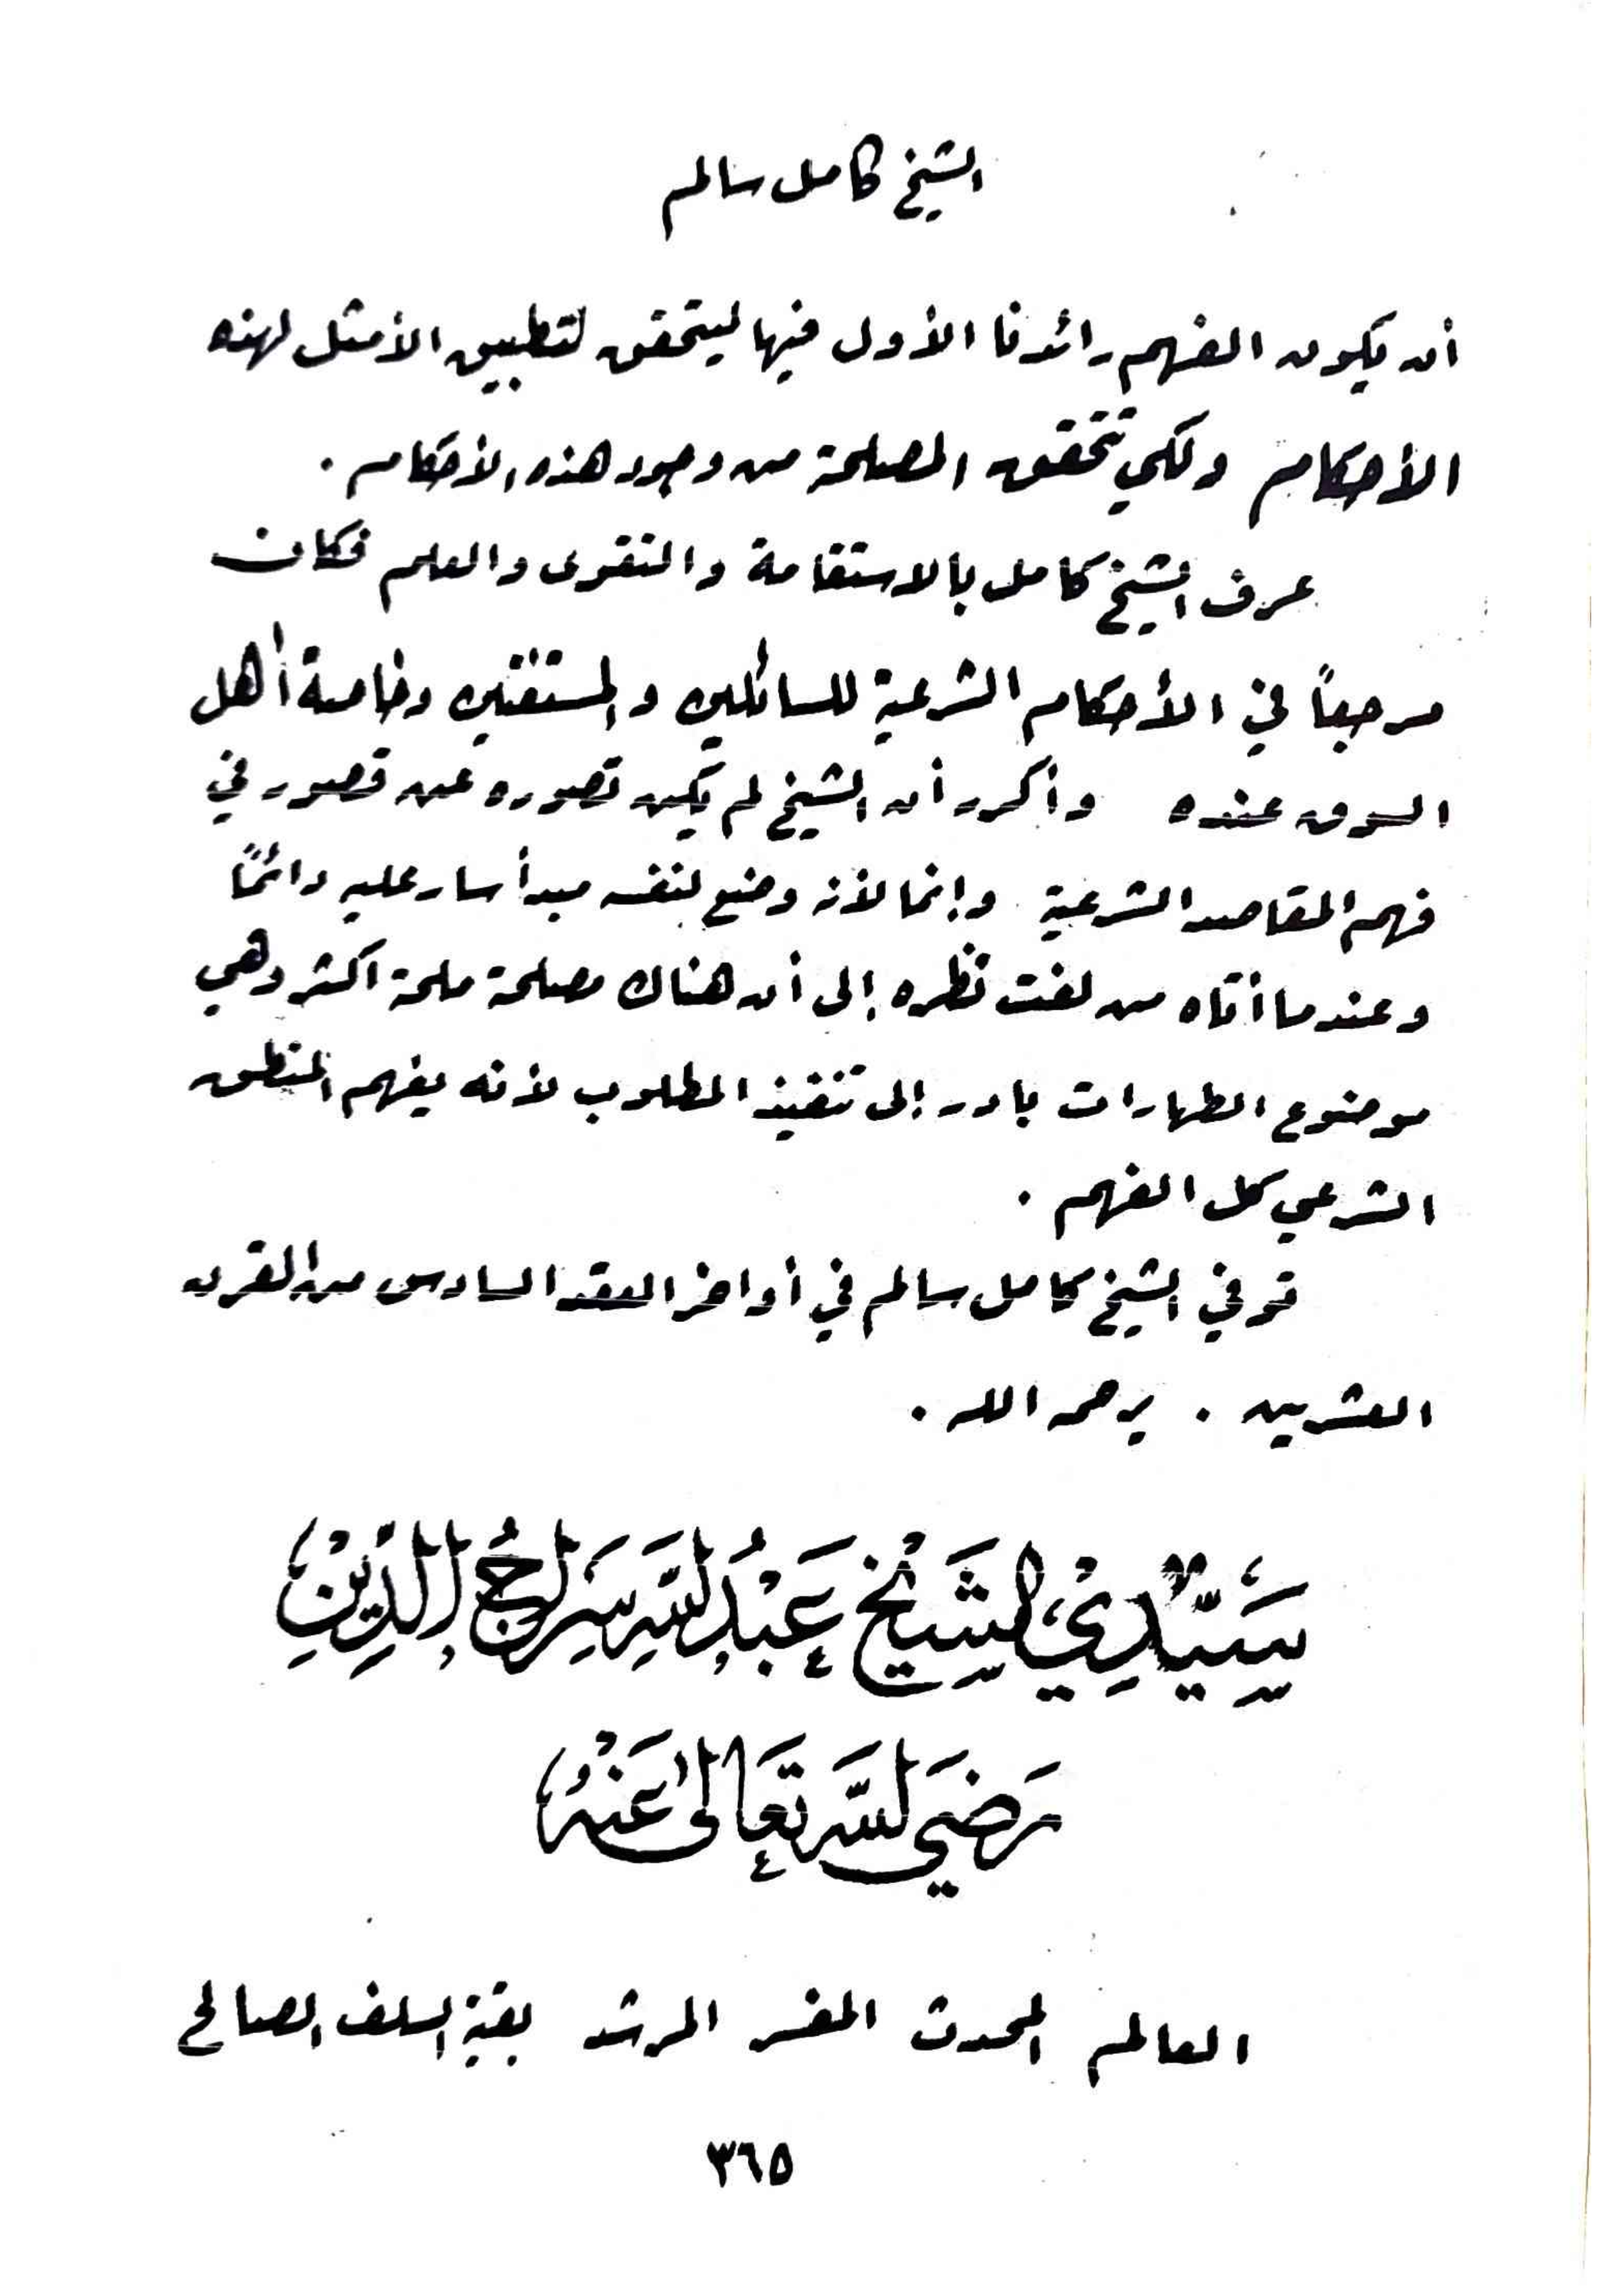 الشيخ كامل سالم
أن يكون الفهم رائدنا الأول فيها ليتحقق التطبيق الأمثل لهذه
الأحكام ولكي تتحقق المصلحة من وجود هذه الأحكام .
عرف الشيخ كامل بالاستقامة والتقوى والعلم فكان
مرجعاً في الأحكام الشرعية للسائلين والمستفتين وخاصة أهل
السوق عنده وأكرر أن الشيخ لم يكن تصوره عن قصور في
فهم المقاصد الشرعية وإنما لأنه وضع لنفسه مبدأ سار عليه دائماً
وعندما أتاه من لفت نظره إلى أن هناك مصلحة ملحة أكثر وهي
موضوع الطهارات بادر إلى تنفيذ المطلوب لأنه يفهم المنطق
الشرعي كل الفهم .
توفي الشيخ كامل سالم في أواخر العقد السادس من القرن
العشرين . يرحمه الله .
سَيِّدِيْ الشَّيْخ عَبْدُ اللَّهِ سِرَاجُ الدِّيْنِ
رَضِيَ اللَّه تَعَالَى عَنْهُ
العالم المحدث المفسر المرشد بقية السلف الصالح
٣٦٥